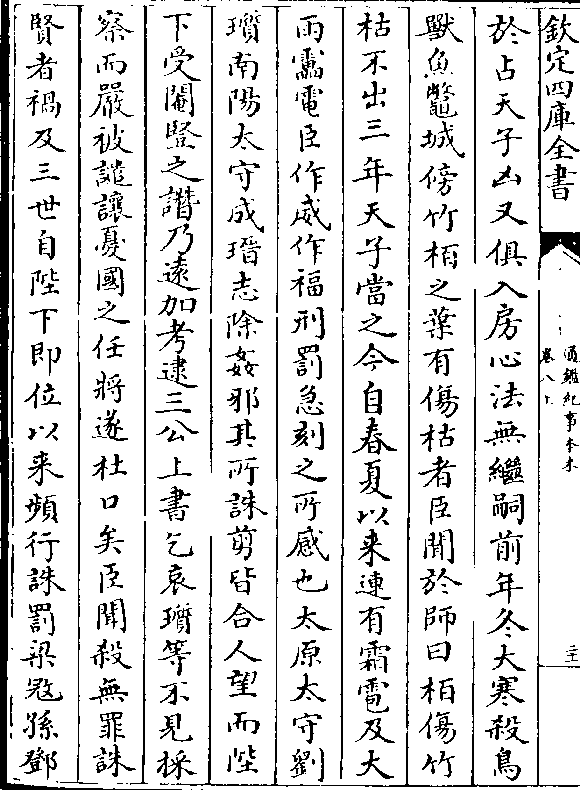 欽定四庫全書
通鑑紀事本末
卷八上
於占天子凶又俱入房心法無繼嗣前年冬大寒殺鳥
獸魚鼈城傍竹栢之葉有傷枯者臣聞於師曰栢傷竹
枯不出三年天子當之今自春夏以来連有霜雹及大
雨靁電臣作威作福刑罰急刻之所感也太原太守劉
瓆南陽太守成瑨志除姦邪其所誅剪皆合人望而陛
下受閹豎之譖乃遠加考逮三公上書乞哀瓆等不見採
察而嚴被譴讓憂國之任將遂杜口矣臣聞殺無罪誅
賢者禍及三世自陛下即位以来頻行誅罰梁冦孫鄧